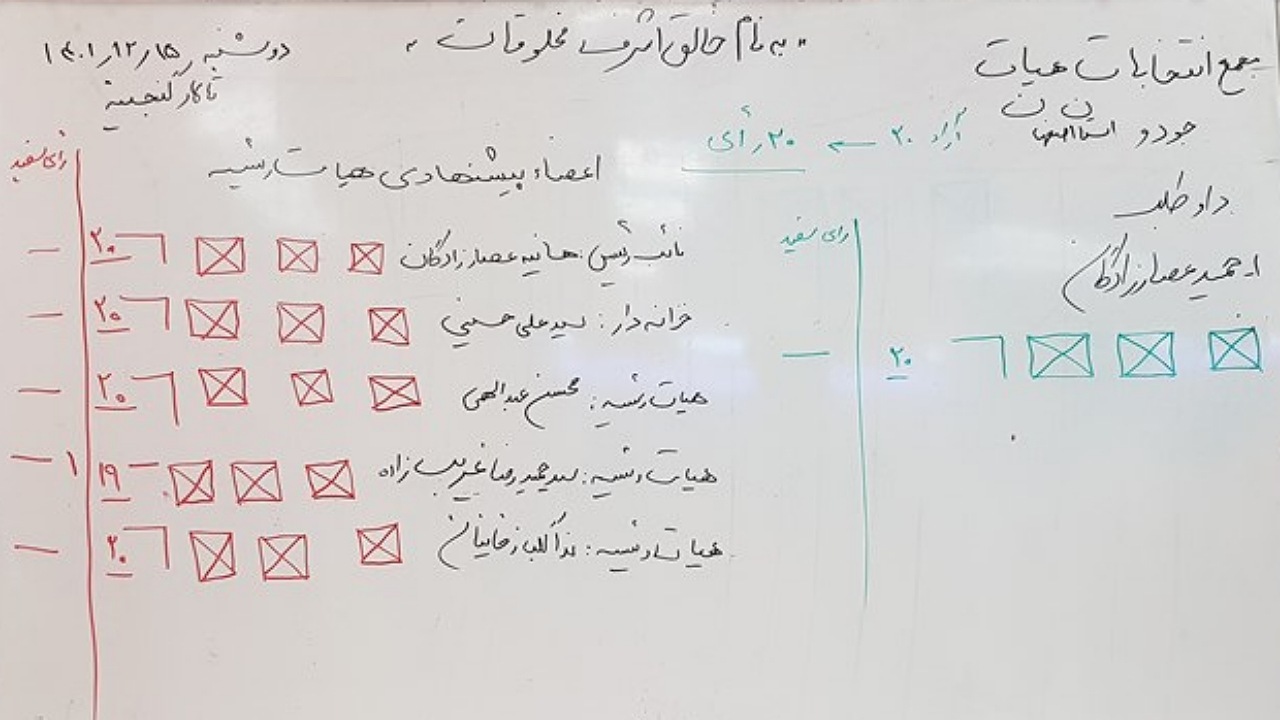 « به نام خالق اشرف مخلوقات »
دوشنبه ۱۴۰۱/۱۲/۱۵
تالار گنجینه
مجمع انتخابات هیات
جودو استان
آراء ۲۰ ← ۲۰ رأی
داوطلب
رای سفید
۱- حمید عصارزادگان
۲۰ —
اعضاء پیشنهادی هیات رئیسه
رأی سفید
نائب رئیس: هانیه عصارزادگان ۲۰ —
خزانه دار: سید علی حسینی ۲۰ —
هیات رئیسه: محسن عبدالهی ۲۰ —
هیات رئیسه: سید حمیدرضا غریب زاده ۱۹ ۱ —
هیات رئیسه: ندا ۲۰ —